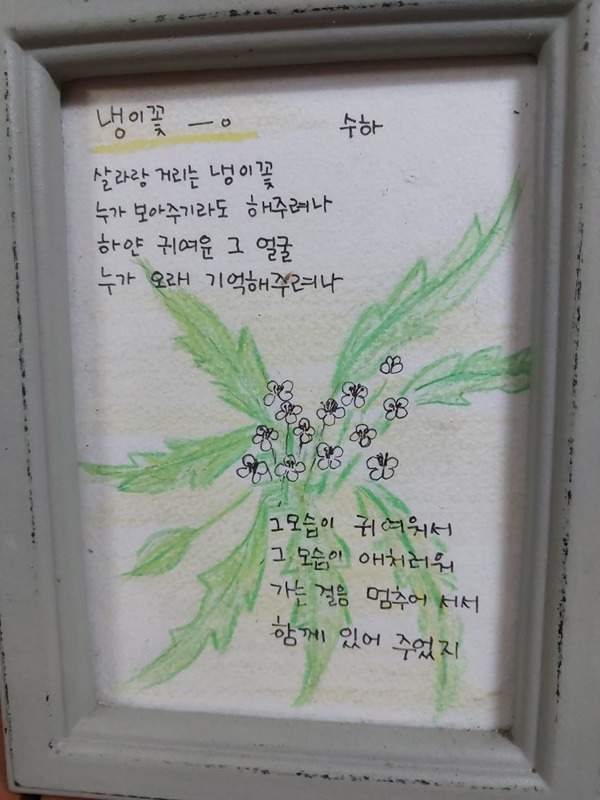 냉이꽃 —。 수하
살라랑 거리는 냉이꽃
누가 보아주기라도 해주려나
하얀 귀여운 그 얼굴
누가 오래 기억해주려나
그모습이 귀여워서
그 모습이 애처러워
가는 걸음 멈추어 서서
함께 있어 주었지